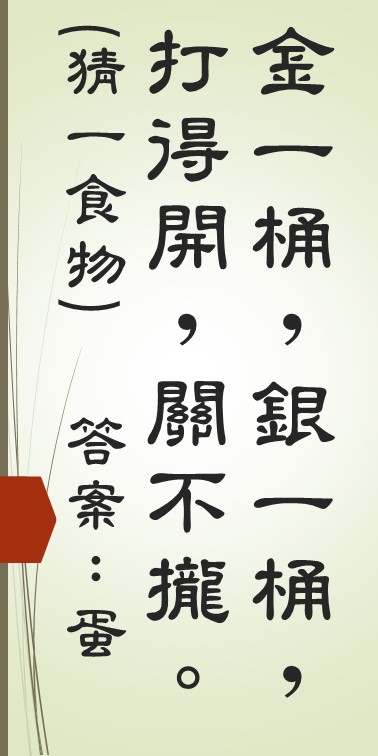 金一桶，銀一桶，
打得開，關不攏。
(猜一食物) 答案：蛋